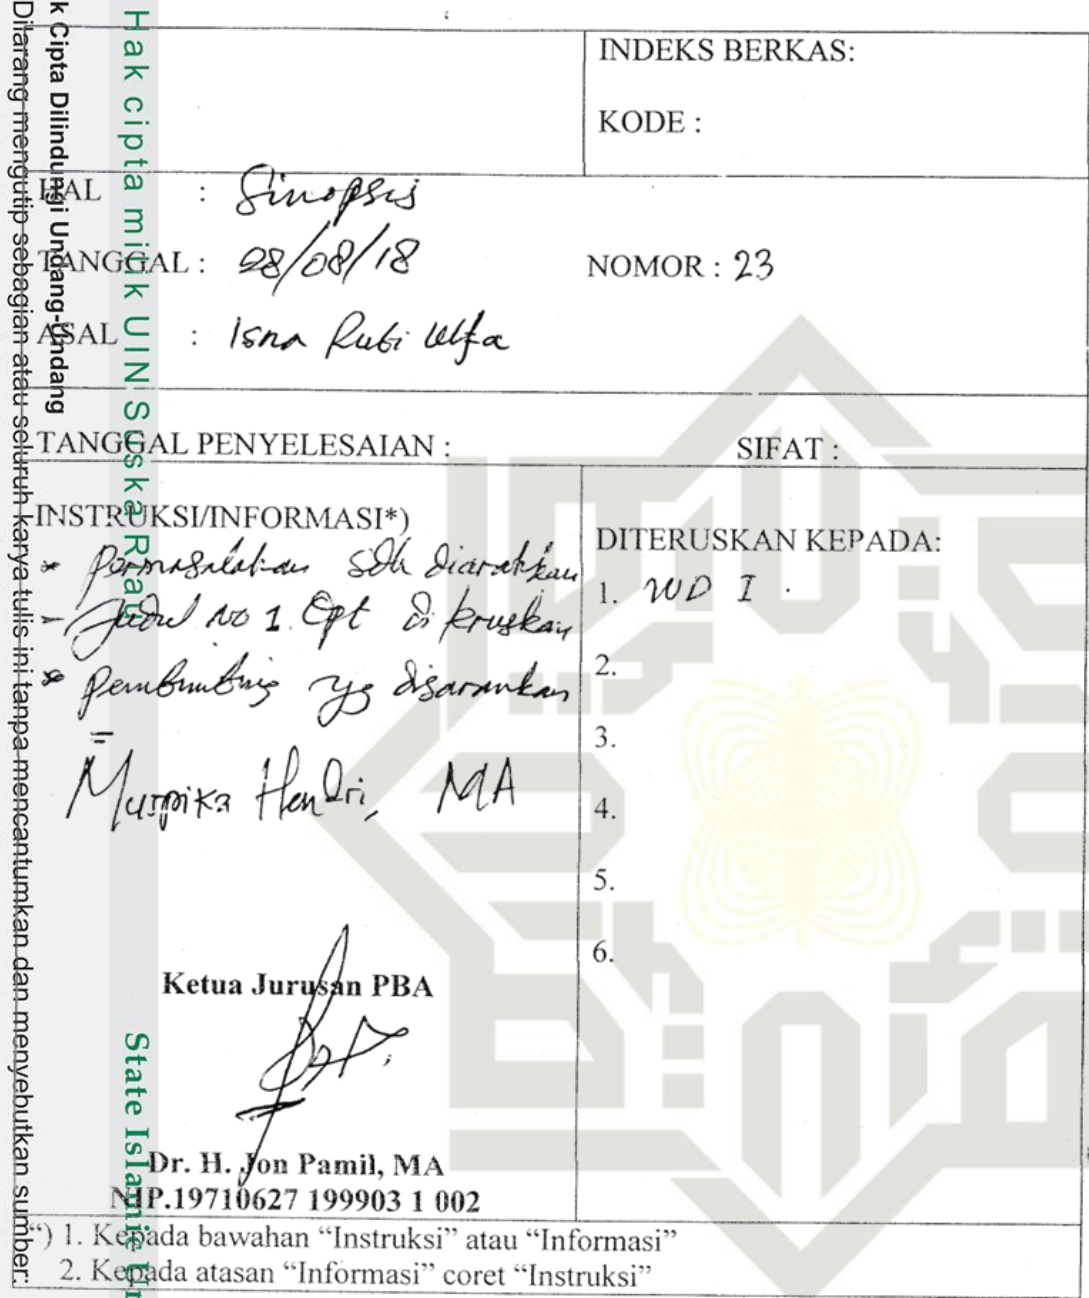 INDEKS BERKAS:
KODE :
HAL : Sinopsis
TANGGAL : 28/08/18 NOMOR : 23
ASAL : Isna Rubi Ulfa
TANGGAL PENYELESAIAN : SIFAT :
INSTRUKSI/INFORMASI*)
* Permasalahan sdh diarahkan
- Judul no 1 dpt di teruskan
* Pembimbing yg disarankan
Murpika Hendri, MA
Ketua Jurusan PBA
Dr. H. Jon Pamil, MA
NIP.19710627 199903 1 002
DITERUSKAN KEPADA:
1. WD I
2.
3.
4.
5.
6.
*) 1. Kepada bawahan “Instruksi” atau “Informasi”
2. Kepada atasan “Informasi” coret “Instruksi”
Hak cipta milik UIN Suska Riau
State Islamic Un
k Cipta Dilindungi Undang-Undang
Dilarang mengutip sebagian atau seluruh karya tulis ini tanpa mencantumkan dan menyebutkan sumber: